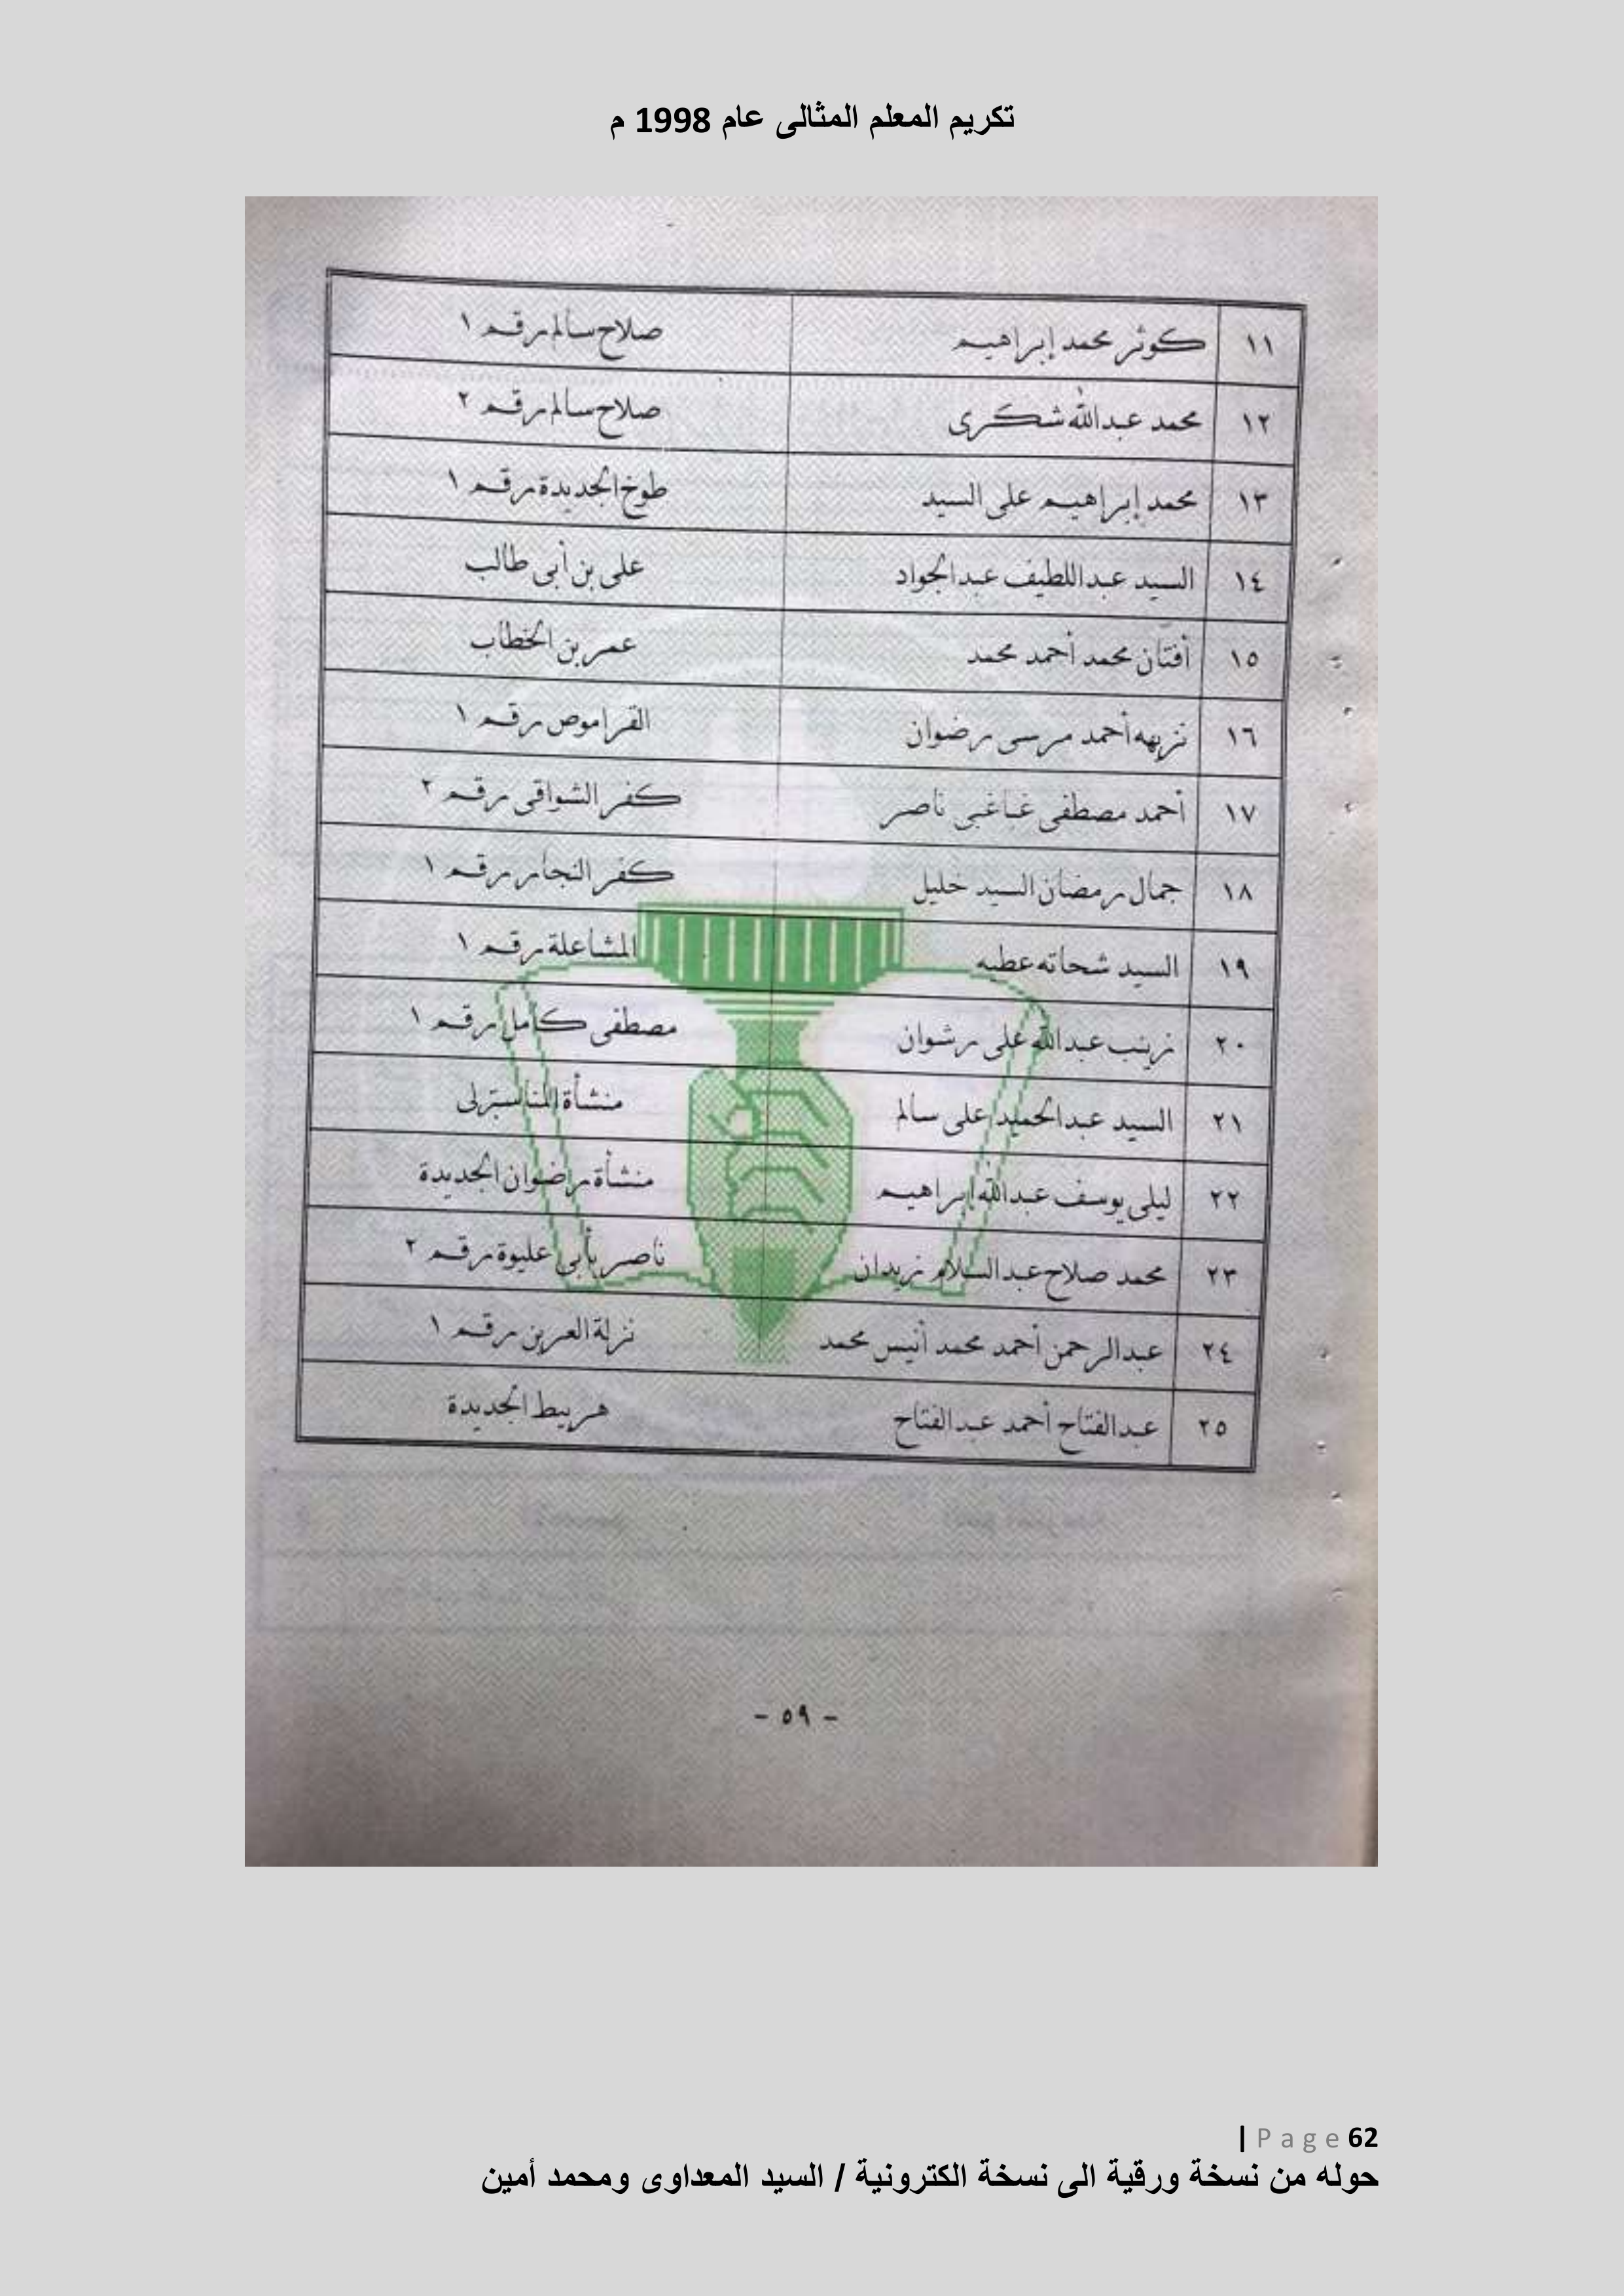 تكريم المعلم المثالى عام 1998 م
١١ كوثر محمد إبراهيم صلاح سالم رقم ١
١٢ محمد عبدالله شكرى صلاح سالم رقم ٢
١٣ محمد إبراهيم على السيد طوخ الجديدة رقم ١
١٤ السيد عبداللطيف عبدالجواد على بن أبى طالب
١٥ أفتان محمد أحمد محمد عمر بن الخطاب
١٦ نزيهه أحمد مرسى رضوان القراموص رقم ١
١٧ أحمد مصطفى غباغبى ناصر كفر الشواقى رقم ٢
١٨ جمال رمضان السيد خليل كفر النجار رقم ١
١٩ السيد شحاته عطيه المشاعلة رقم ١
٢٠ زينب عبدالله على رشوان مصطفى كامل رقم ١
٢١ السيد عبدالحميد على سالم منشأة المناسترلى
٢٢ ليلى يوسف عبدالله إبراهيم منشأة رضوان الجديدة
٢٣ محمد صلاح عبدالسلام زيدان ناصر بأبى عليوة رقم ٢
٢٤ عبدالرحمن أحمد محمد أنيس محمد نزلة العرين رقم ١
٢٥ عبدالفتاح أحمد عبدالفتاح هربيط الجديدة
- ٥٩ -
62 Page |
حوله من نسخة ورقية الى نسخة الكترونية / السيد المعداوى ومحمد أمين